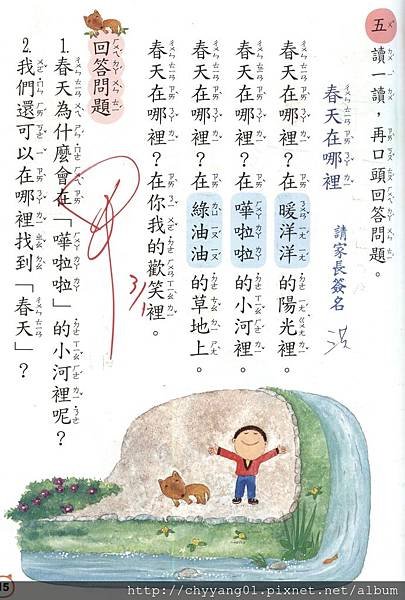 五
讀一讀，再口頭回答問題。
春天在哪裡
請家長簽名
春天在哪裡？在暖洋洋的陽光裡。
春天在哪裡？在嘩啦啦的小河裡。
春天在哪裡？在綠油油的草地上。
春天在哪裡？在你我的歡笑裡。
回答問題
1.春天為什麼會在「嘩啦啦」的小河裡呢？
2.我們還可以在哪裡找到「春天」？
3/1
15
http://chyyang01.pixnet.net/album